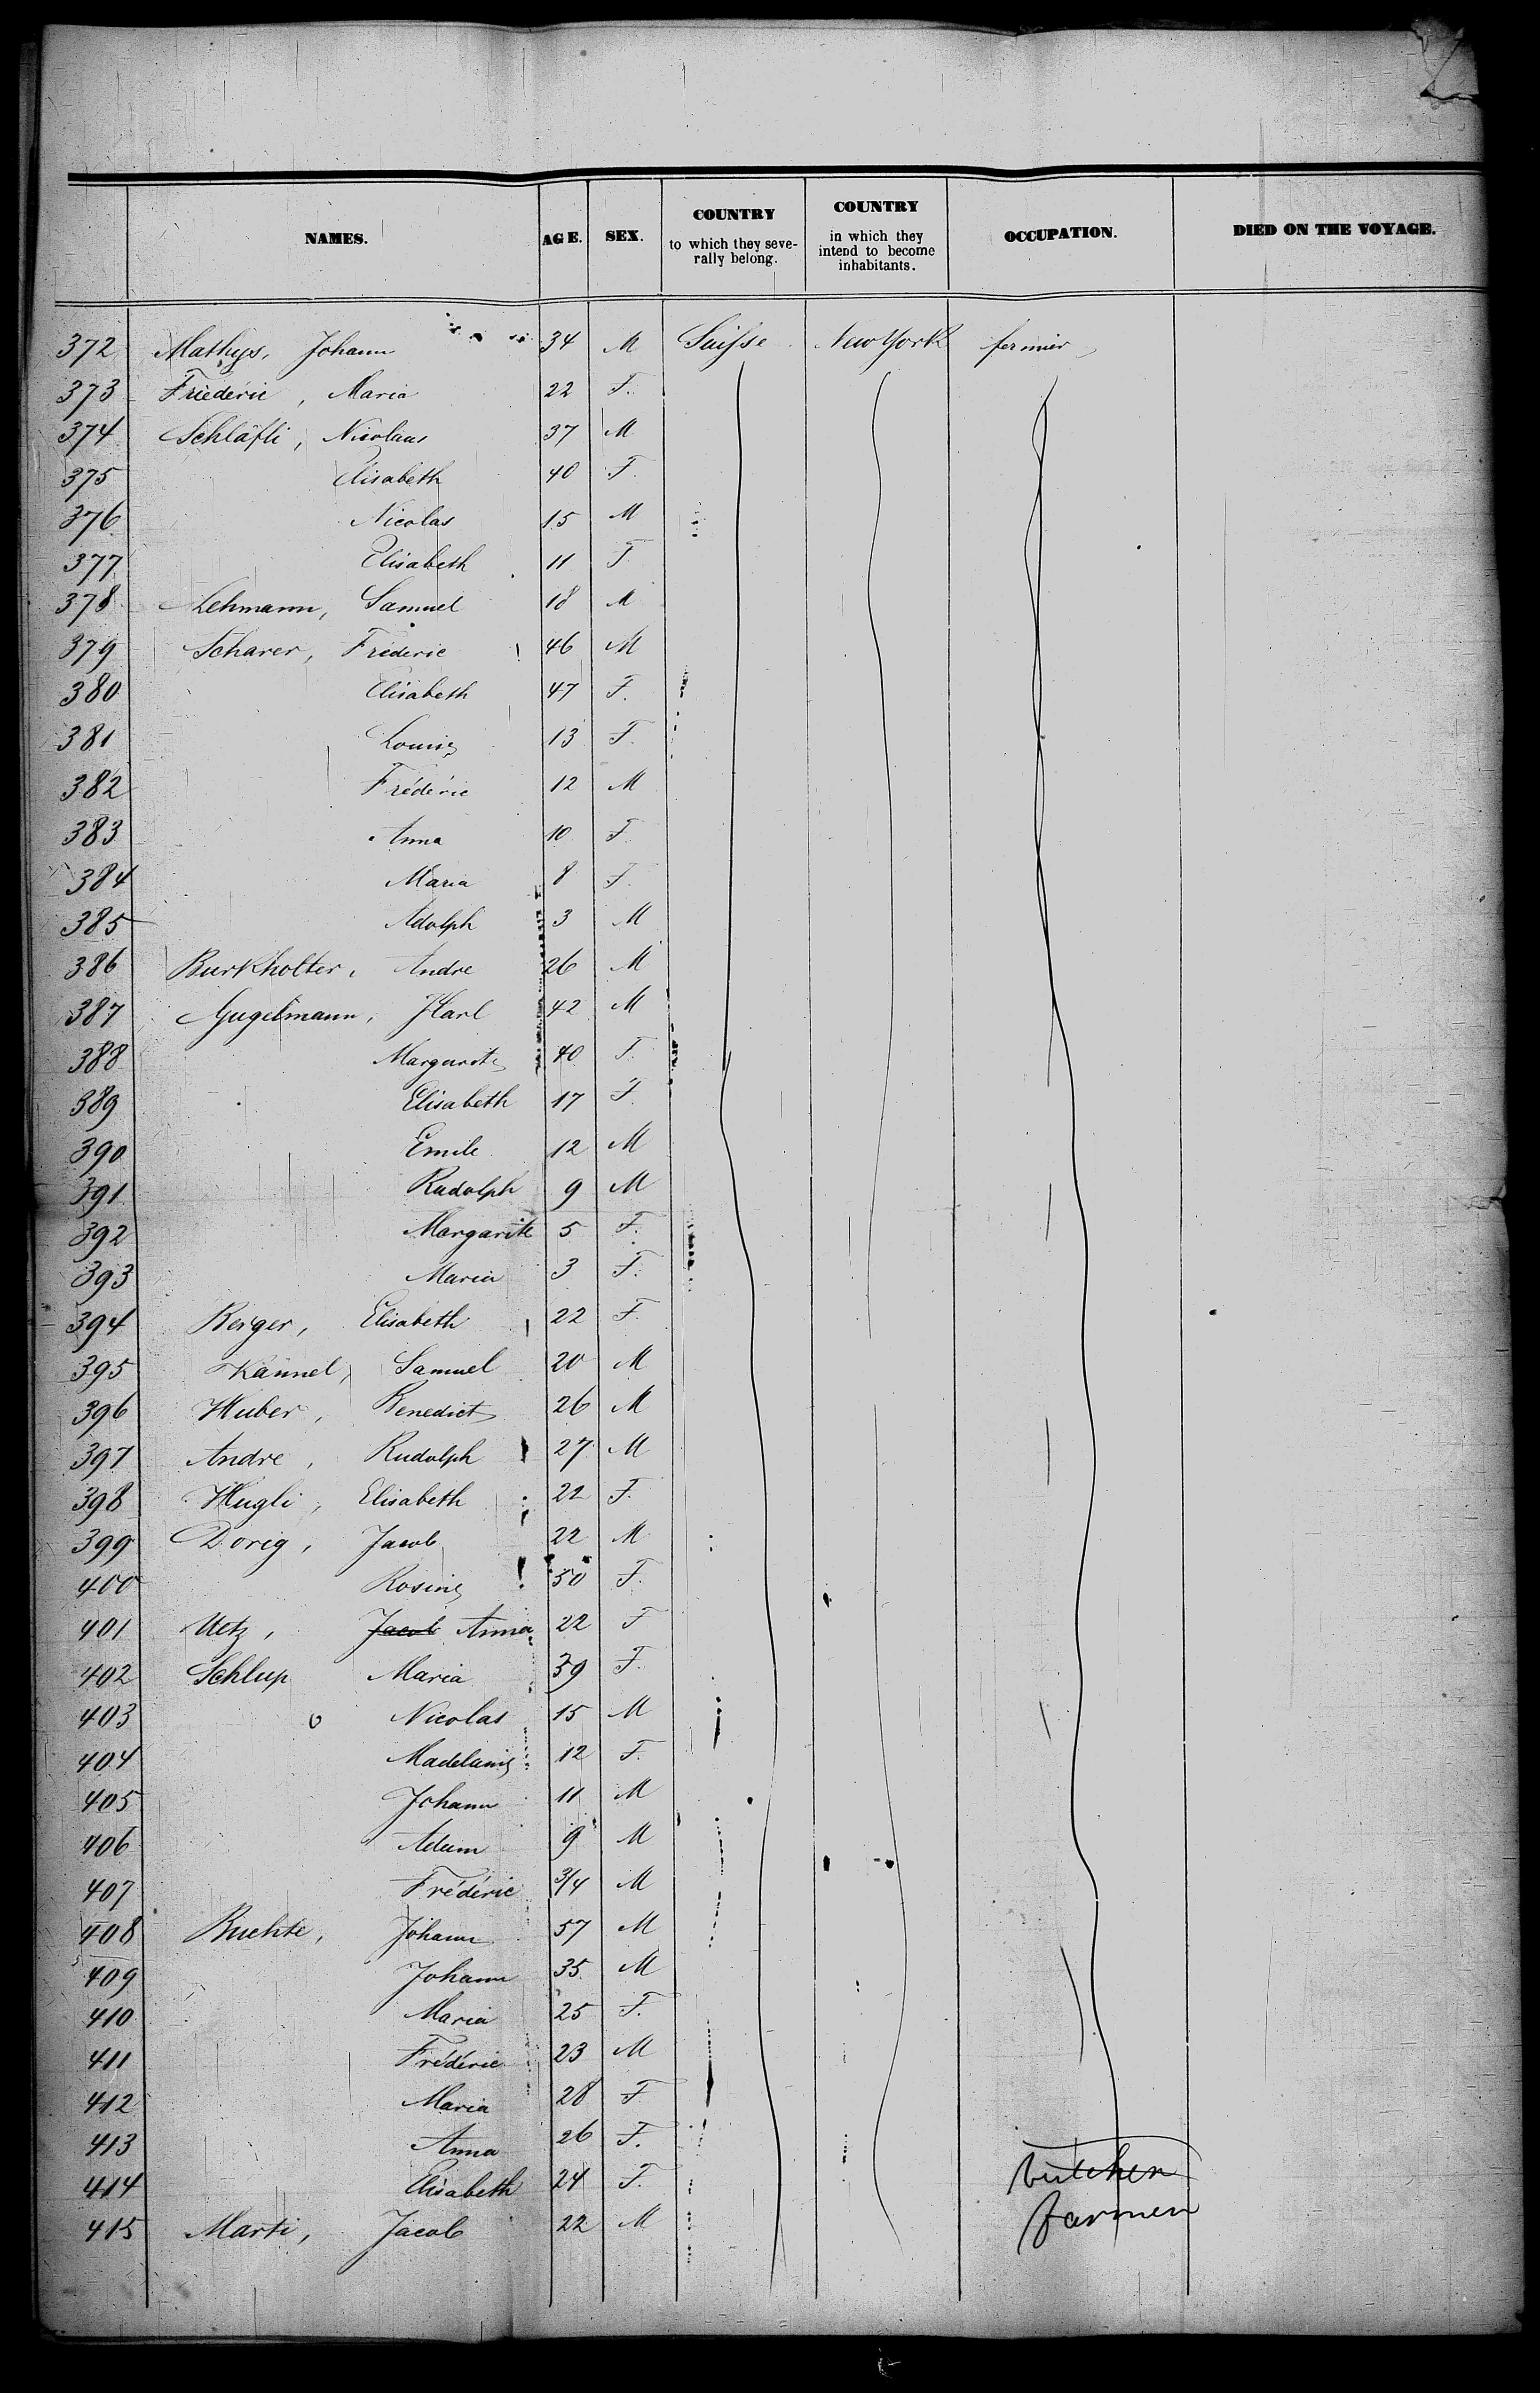 NAMES. AGE. SEX. COUNTRY to which they seve-rally belong. COUNTRY in which they intend to become inhabitants. OCCUPATION. DIED ON THE VOYAGE.
372 Mathys, Johann 34 M Suisse New York fermier
373 Friederic, Maria 22 F.
374 Schläfli, Nicolaus 37 M
375 Elisabeth 40 F.
376 Nicolas 15 M
377 Elisabeth 11 F
378 Lehmann, Samuel 18 M
379 Scharer, Fréderic 46 M
380 Elisabeth 47 F.
381 Louise 13 F.
382 Fréderic 12 M
383 Anna 10 F.
384 Maria 8 F.
385 Adolph 3 M
386 Burkholter, Andre 26 M
387 Gugelmann, Karl 42 M
388 Margarite 40 F.
389 Elisabeth 17 F.
390 Emile 12 M
391 Rudolph 9 M
392 Margarite 5 F.
393 Maria 3 F.
394 Berger, Elisabeth 22 F.
395 Kannel, Samuel 20 M
396 Huber, Benedict 26 M
397 Andre, Rudolph 27 M
398 Hugli, Elisabeth 22 F.
399 Dorig, Jacob 22 M
400 Rosine 50 F.
401 Uetz, Jacob Anna 22 F
402 Schlup Maria 39 F.
403 Nicolas 15 M
404 Madelaine 12 F.
405 Johann 11 M
406 Adam 9 M
407 Fréderic 3/4 M
408 Buchte, Johann 57 M
409 Johann 35 M
410 Maria 25 F.
411 Fréderic 23 M
412 Maria 28 F
413 Anna 26 F.
414 Elisabeth 24 F. butcher
415 Marti, Jacob 22 M farmer